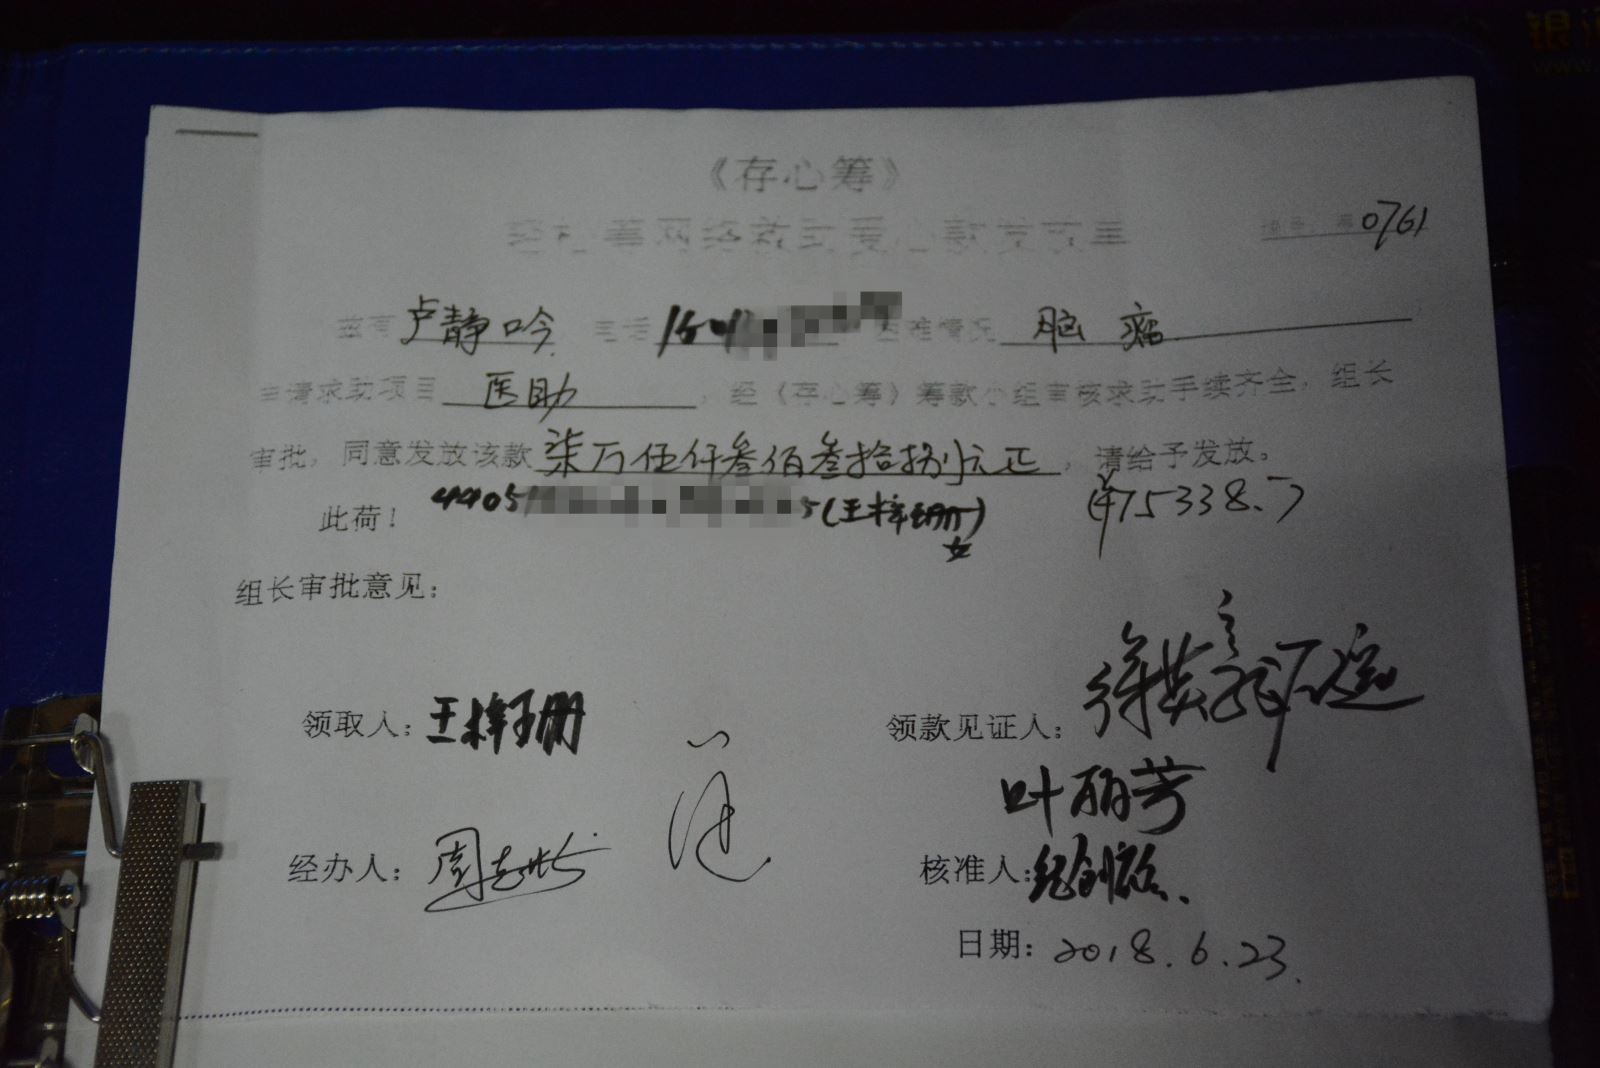 《存心筹》
0761
兹有 卢静吟 电话 困难情况 脑瘤
申请求助项目 医助 ，经《存心筹》筹款小组审核求助手续齐全，组长
审批，同意发放该款 柒万伍仟叁佰叁拾捌元正 ，请给予发放。
此荷！ 4405 5(王梓珊) (¥75338.-)
女
组长审批意见：
领取人：王梓珊 领款见证人：
叶丽芳
经办人： 核准人：
日期：2018.6.23.